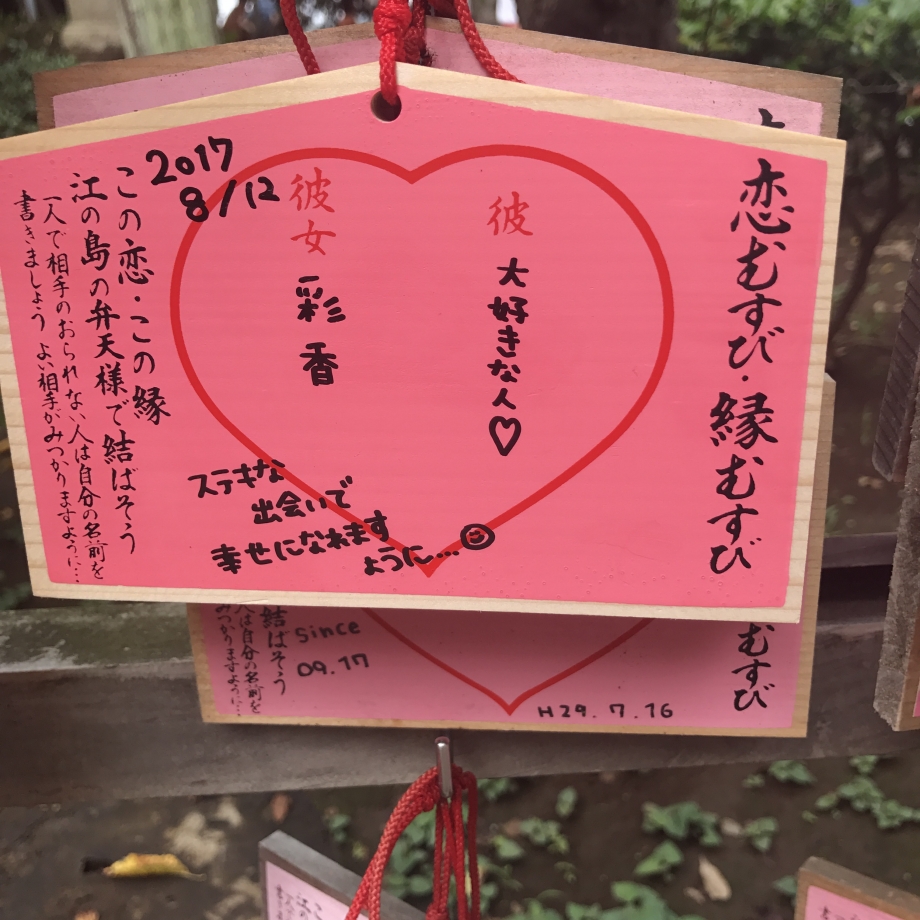 恋むすび・縁むすび
彼
大好きな人♡
彼女
彩香
2017
8/12
ステキな
出会いで
幸せになれます
ように…
この恋・この縁
江の島の弁天様で結ばそう
一人で相手のおられない人は自分の名前を
書きましょう よい相手がみつかりますように…
むすび
結ばそう
人は自分の名前を
みつかりますように…
Since
09.17
H29.7.16